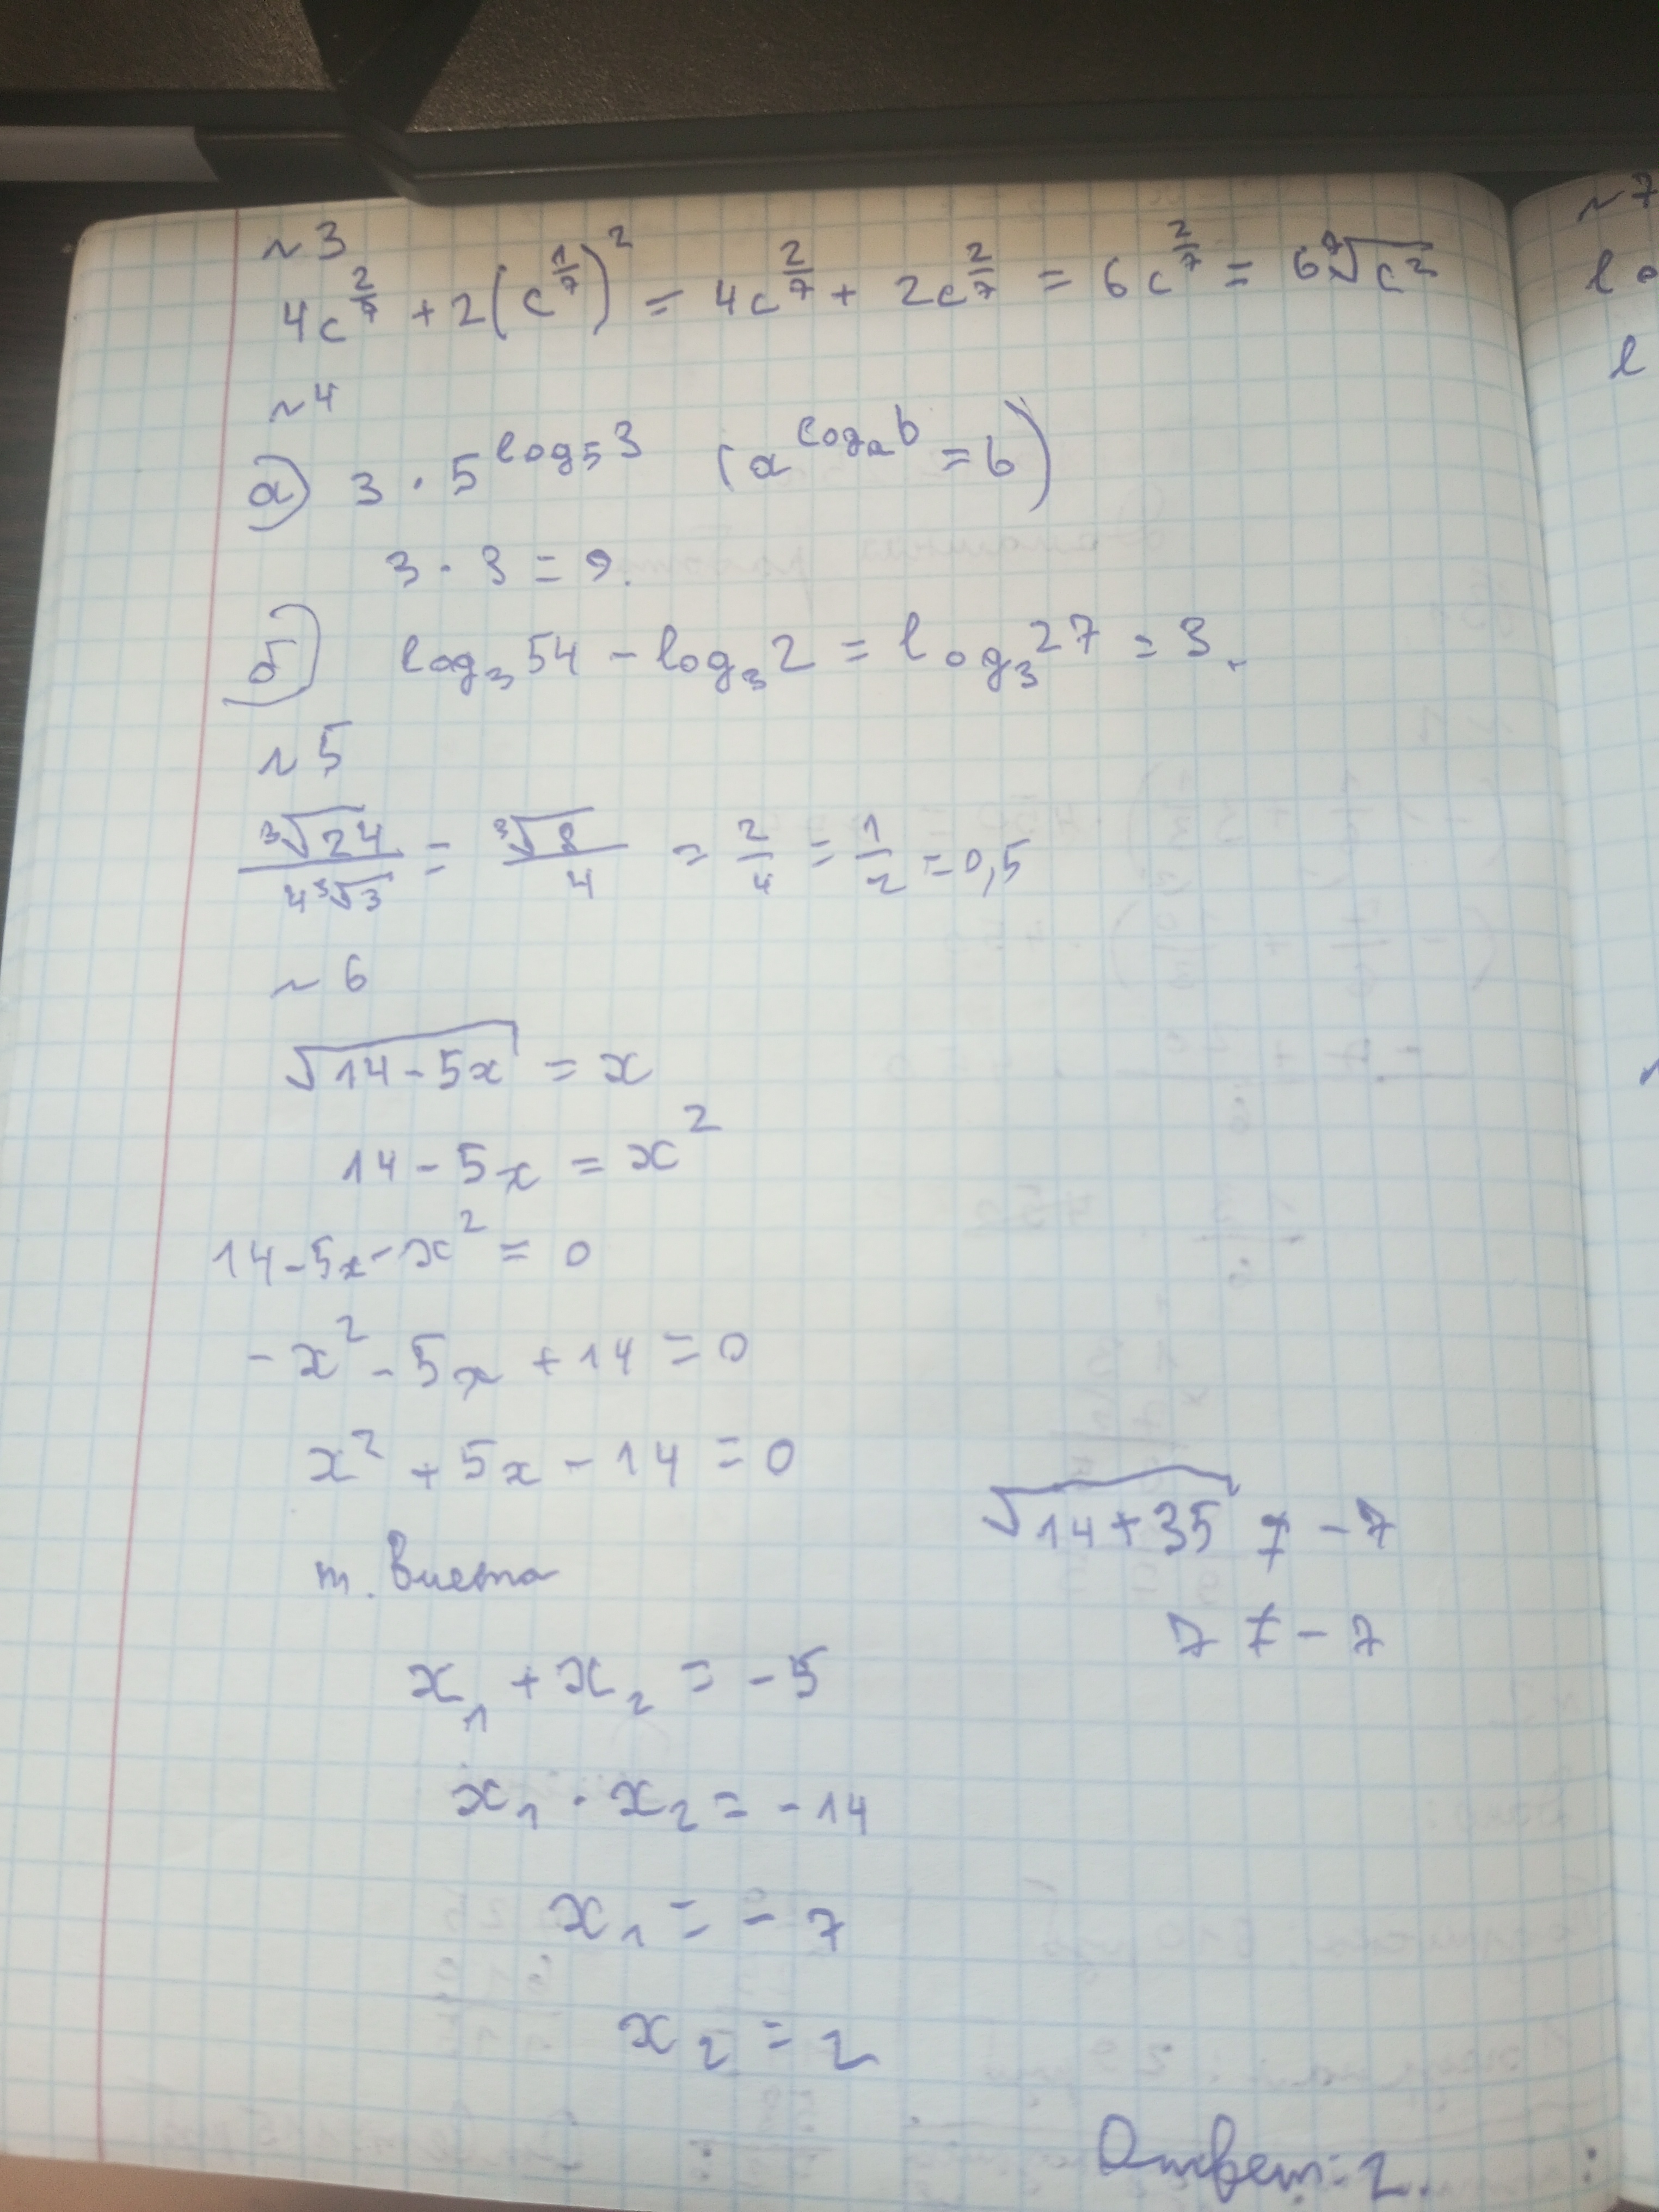 ~3
4c^(2/7) + 2(c^(1/7))^2 = 4c^(2/7) + 2c^(2/7) = 6c^(2/7) = 6 ⁷√c²
~4
а) 3 · 5^(log₅3) (a^(logₐb) = b)
3 · 3 = 9.
б) log₃54 - log₃2 = log₃27 = 3.
~5
³√24 / 4³√3 = ³√8 / 4 = 2/4 = 1/2 = 0,5
~6
√14-5x = x
14-5x = x²
14-5x-x² = 0
-x²-5x+14=0
x²+5x-14=0
т. Виета
x₁+x₂=-5
x₁·x₂=-14
x₁=-7
x₂=2
√14+35 ≠ -7
7 ≠ -7
Ответ: 2.
~7